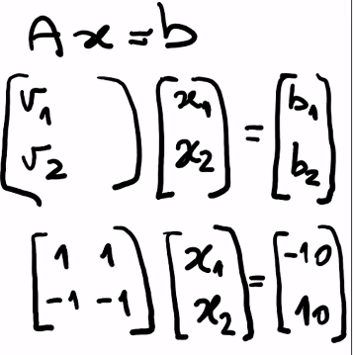 Ax=b
(v₁ v₂) [x₁ x₂] = [b₁ b₂]
[1 1 -1 -1] [x₁ x₂] = [-10 10]